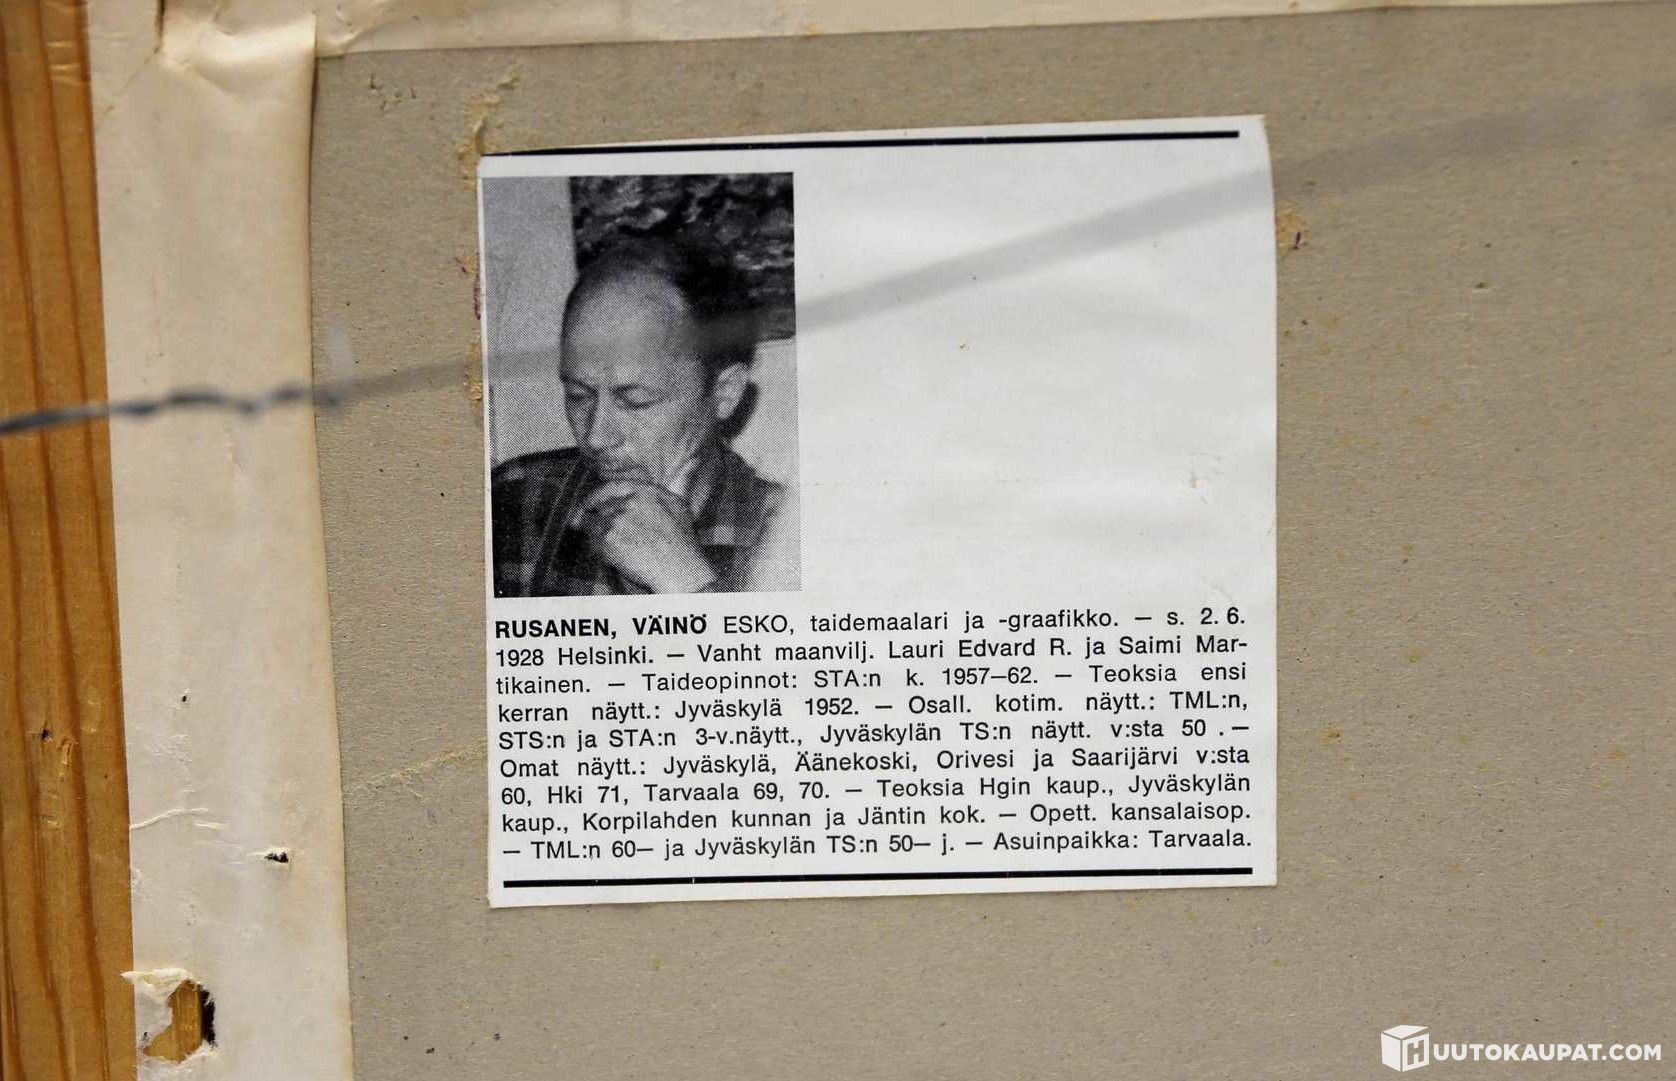 RUSANEN, VÄINÖ ESKO, taidemaalari ja -graafikko. — s. 2. 6.
1928 Helsinki. — Vanht maanvilj. Lauri Edvard R. ja Saimi Mar-
tikainen. — Taideopinnot: STA:n k. 1957—62. — Teoksia ensi
kerran näytt.: Jyväskylä 1952. — Osall. kotim. näytt.: TML:n,
STS:n ja STA:n 3-v.näytt., Jyväskylän TS:n näytt. v:sta 50 . —
Omat näytt.: Jyväskylä, Äänekoski, Orivesi ja Saarijärvi v:sta
60, Hki 71, Tarvaala 69, 70. — Teoksia Hgin kaup., Jyväskylän
kaup., Korpilahden kunnan ja Jäntin kok. — Opett. kansalaisop.
— TML:n 60— ja Jyväskylän TS:n 50— j. — Asuinpaikka: Tarvaala.
HUUTOKAUPAT.COM